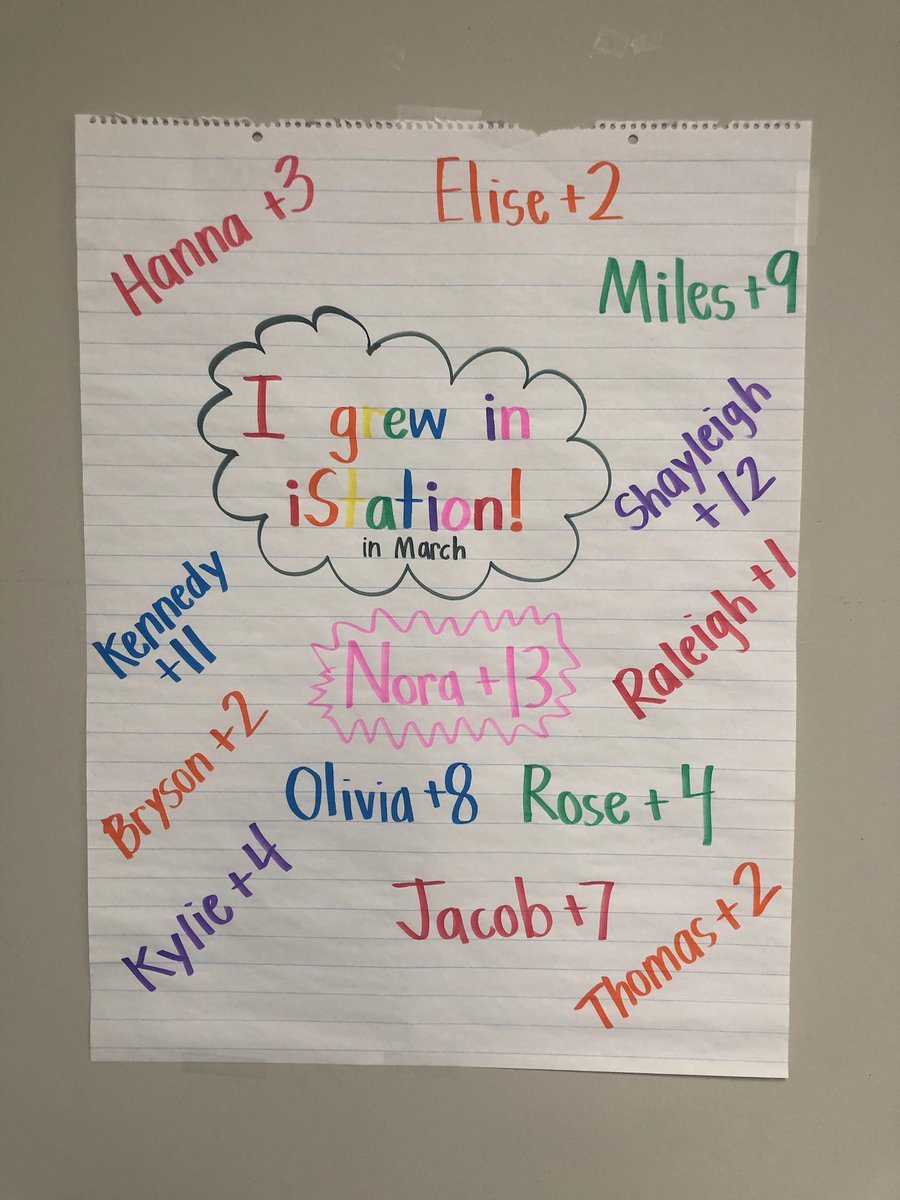 Hanna +3
Elise +2
Miles +9
I grew in
iStation!
in March
Shayleigh
+12
Kennedy
+11
Raleigh +1
Nora +13
Bryson +2
Olivia +8
Rose +4
Kylie +4
Jacob +7
Thomas +2